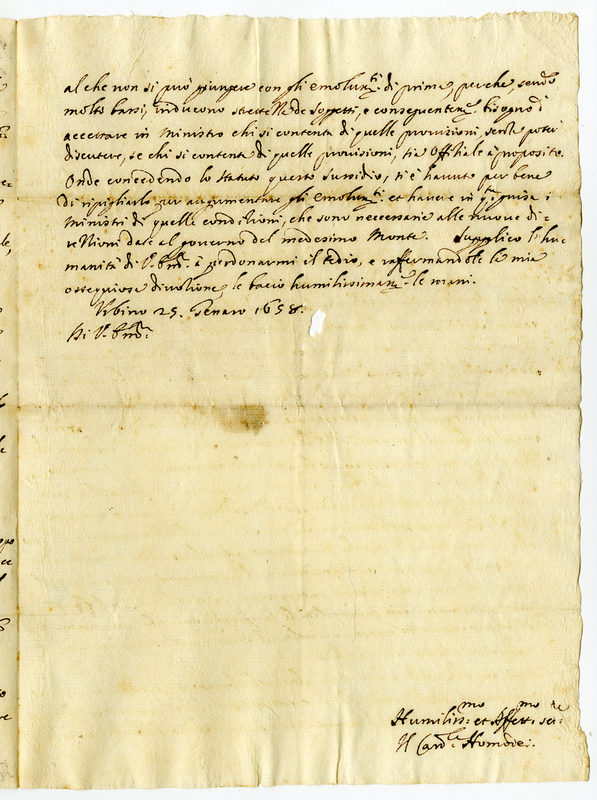 al che non si può giungere con gli emolum.ti di prima, perche, sendo
molto bassi, inducono strettezza de soggetti, e conseguentem.e bisogno di
accettare in Ministro chi si contenta di quelle provisioni, senza poter
discutere, se chi si contenta di quelle provisioni, sia Offitiale à proposito.
Onde concedendo lo Statuto questo sussidio, si è havuto per bene
di ripigliarlo per augumentare gli Emolum.ti et havere in q.ta guisa i
Ministri di quelle conditioni, che sono necessarie alle nuove di=
rettioni date al governo del medesimo Monte. Supplico l'hu
manità di V. Em.za à perdonarmi il tedio, e raffermandole la mia
ossequiosa divotione, le bacio humilissimam.e le mani.
Urbino 25. Genaro 1658.
Di V. Em.za
Humiliss.mo et Affett.mo ser.re
Il Card.le Homodei.